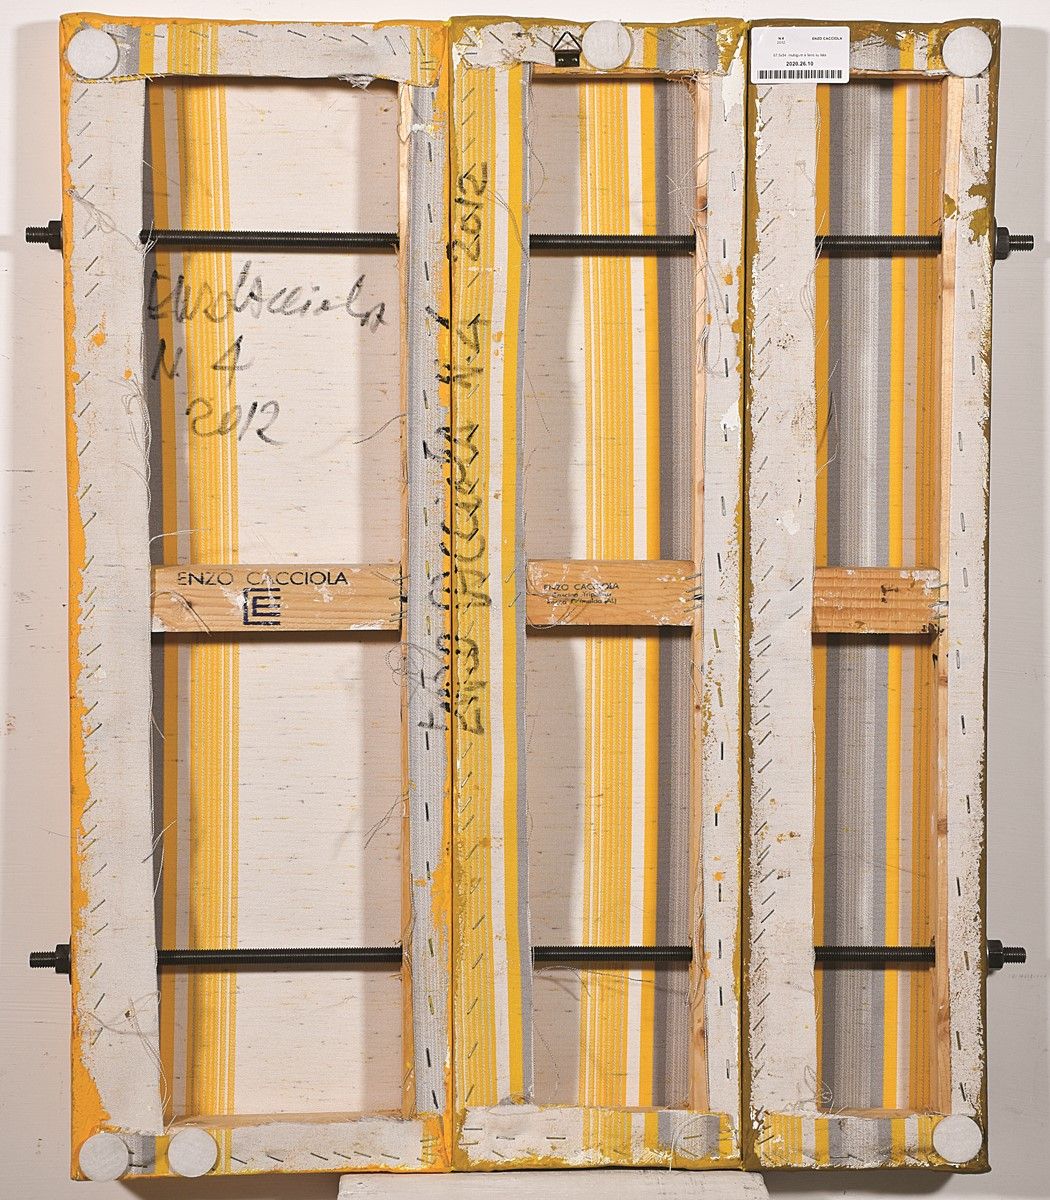 N 4
ENZO CACCIOLA
2012
2020.26.10
Enzo Cacciola
N. 4
2012
ENZO CACCIOLA N. 4 2012
ENZO CACCIOLA
ENZO CACCIOLA